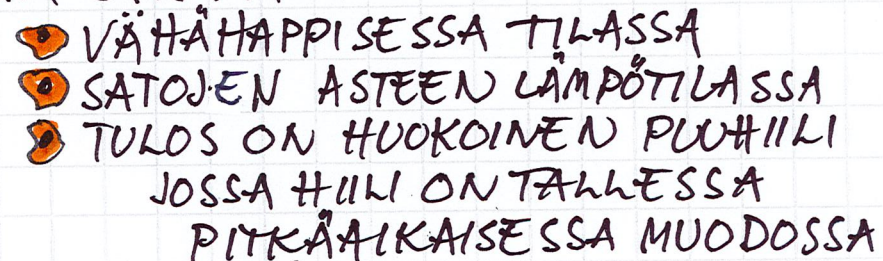 VÄHÄHAPPISESSA TILASSA
SATOJEN ASTEEN LÄMPÖTILASSA
TULOS ON HUOKOINEN PUUHIILI
JOSSA HIILI ON TALLESSA
PITKÄAIKAISESSA MUODOSSA